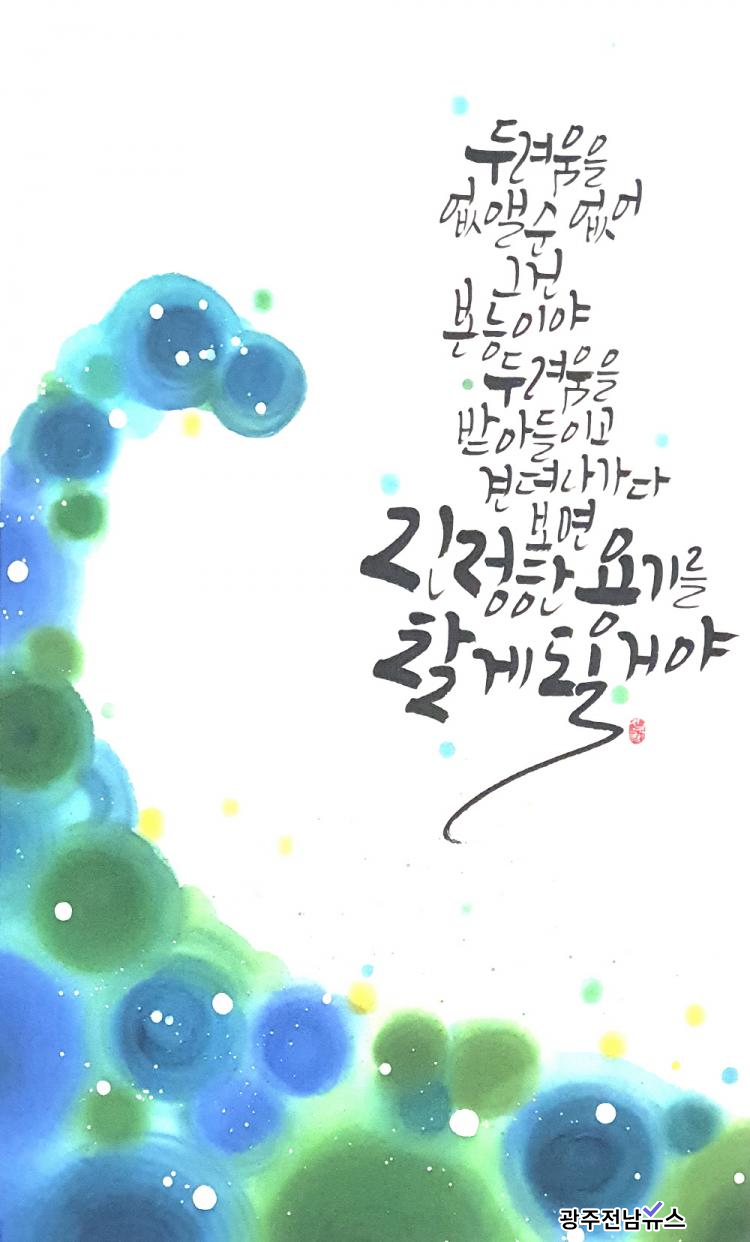 두려움을
없앨순 없어
그건
본능이야
두려움을
받아들이고
견뎌나가다
보면
진정한 용기를
찾게될거야
광주전남뉴스